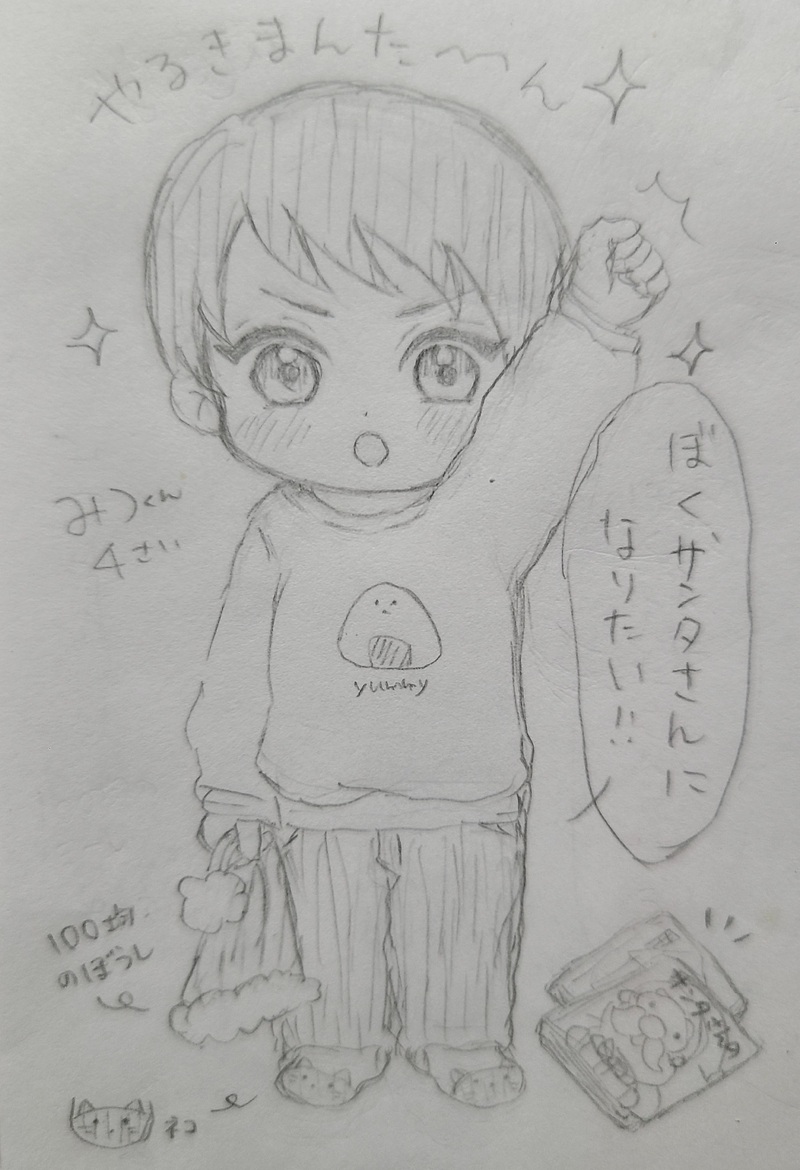 やるきまんた〜ん
みつくん
4さい
ぼくサンタさんに
なりたい!!
yummy
100均
のぼうし
サンタさんの
ネコ